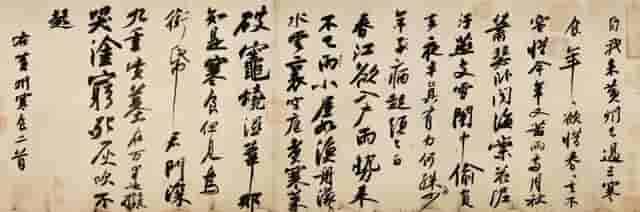 自我來黃州已過三寒
食年年欲惜春春去不
容惜今年又苦雨兩月秋
蕭瑟卧聞海棠花泥
汙燕支雪闇中偷負
去夜半真有力何殊少
年子病起須已白
春江欲入户雨勢來
不已雨小屋如漁舟濛濛
水雲裏空庖煮寒菜
破竈燒濕葦那
知是寒食但見烏
銜帋君門深
九重墳墓在万里也擬
哭塗窮死灰吹不
起
右黃州寒食二首